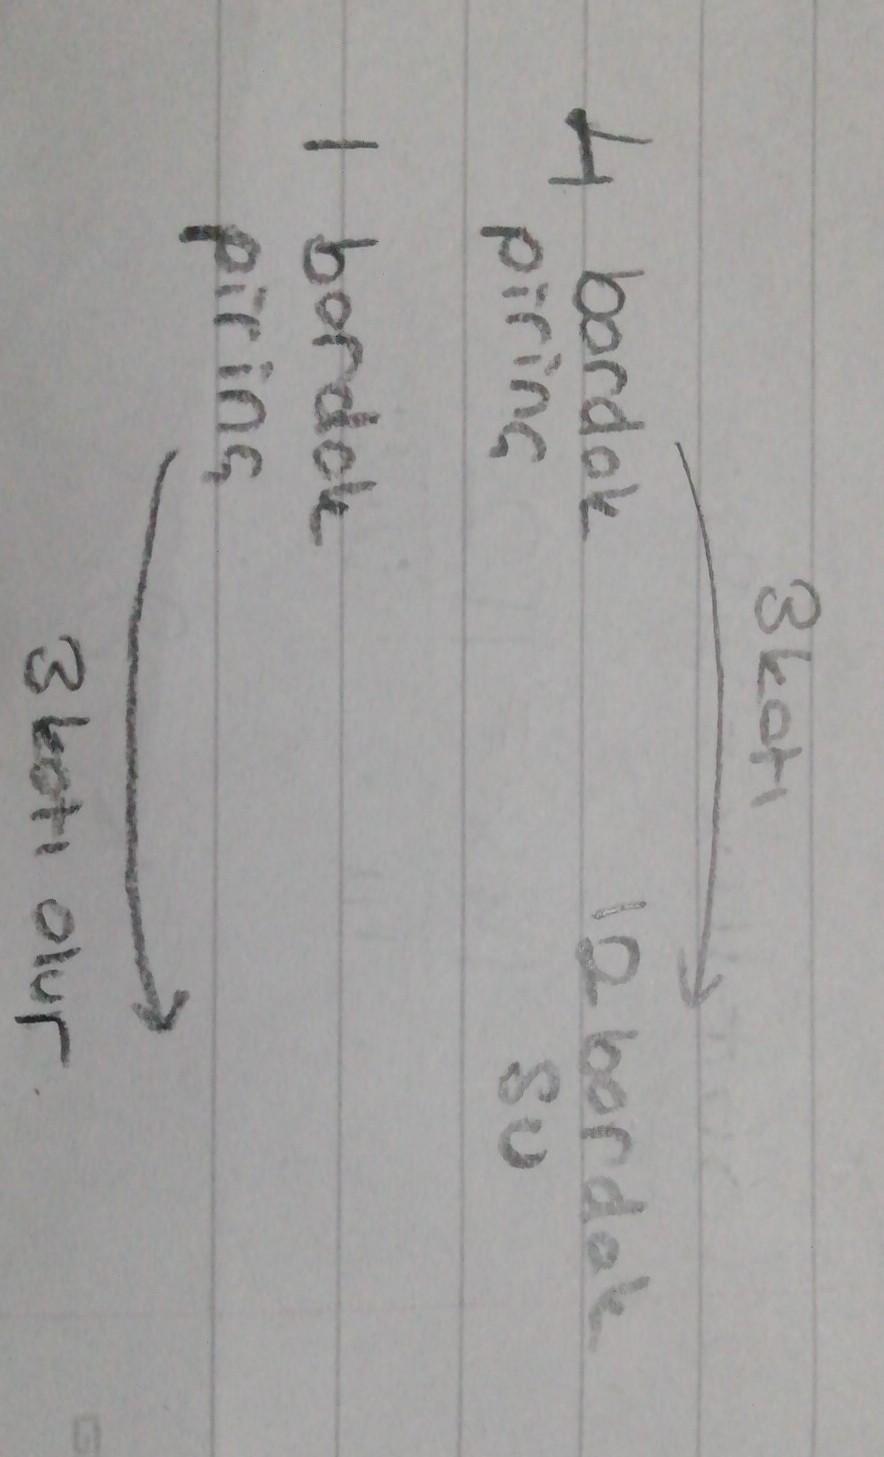 3 katı
4 bardak
pirinç
12 bardak
su
1 bardak
pirinç
3 katı olur.